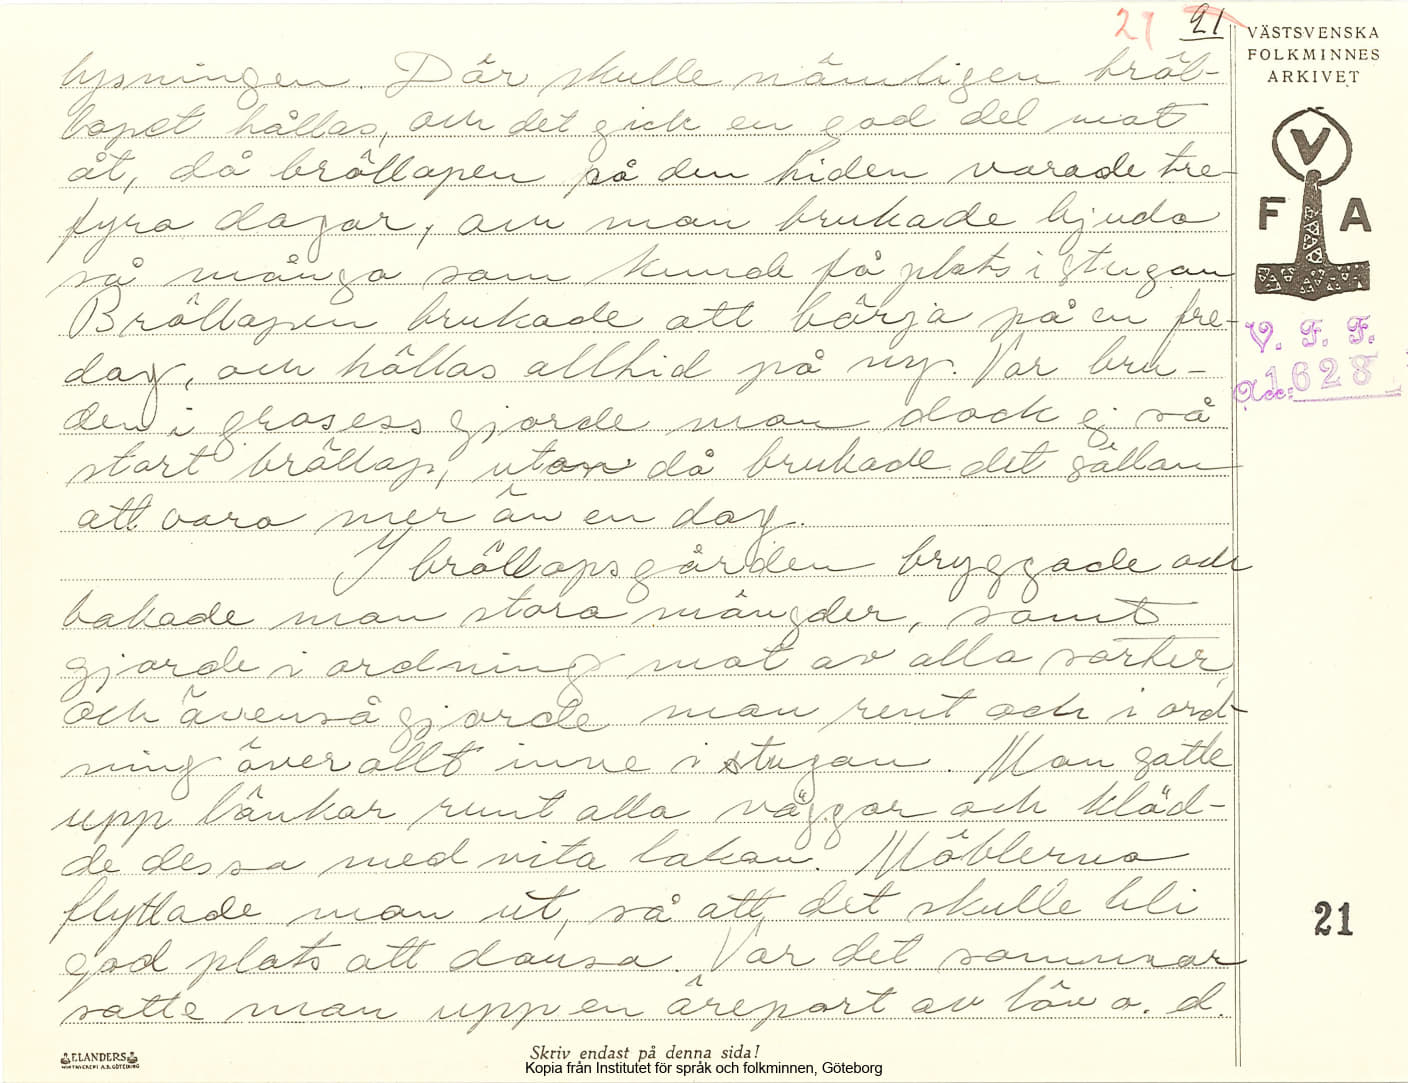 21 21
VÄSTSVENSKA
FOLKMINNES
ARKIVET
V
F A
V. F. F.
Acc: 1628
lysningen. Där skulle nämligen bröl-
lopet hållas, och det gick en god del mat
åt, då bröllopen på den tiden varade tre-
fyra dagar, och man brukade bjuda
så många som kunde få plats i stugan
Bröllopen brukade att börja på en fre-
dag, och hållas alltid på ny. Var bru-
den i grosess gjorde man dock ej så
stort bröllop, utan då brukade det sällan
att vara mer än en dag.
I bröllopsgården bryggade och
bakade man stora mängder, samt
gjorde i ordning mat av alla sorter,
och ävenså gjorde man rent och i ord-
ning överallt inne i stugan. Man satte
upp bänkar runt alla väggar och kläd-
de dessa med vita lakan. Möblerna
flyttade man ut, så att det skulle bli
god plats att dansa. Var det sommar
satte man upp en äreport av löv o. d.
21
ELANDERS
BOKTRYCKERI A.B. GÖTEBORG
Skriv endast på denna sida!
Kopia från Institutet för språk och folkminnen, Göteborg